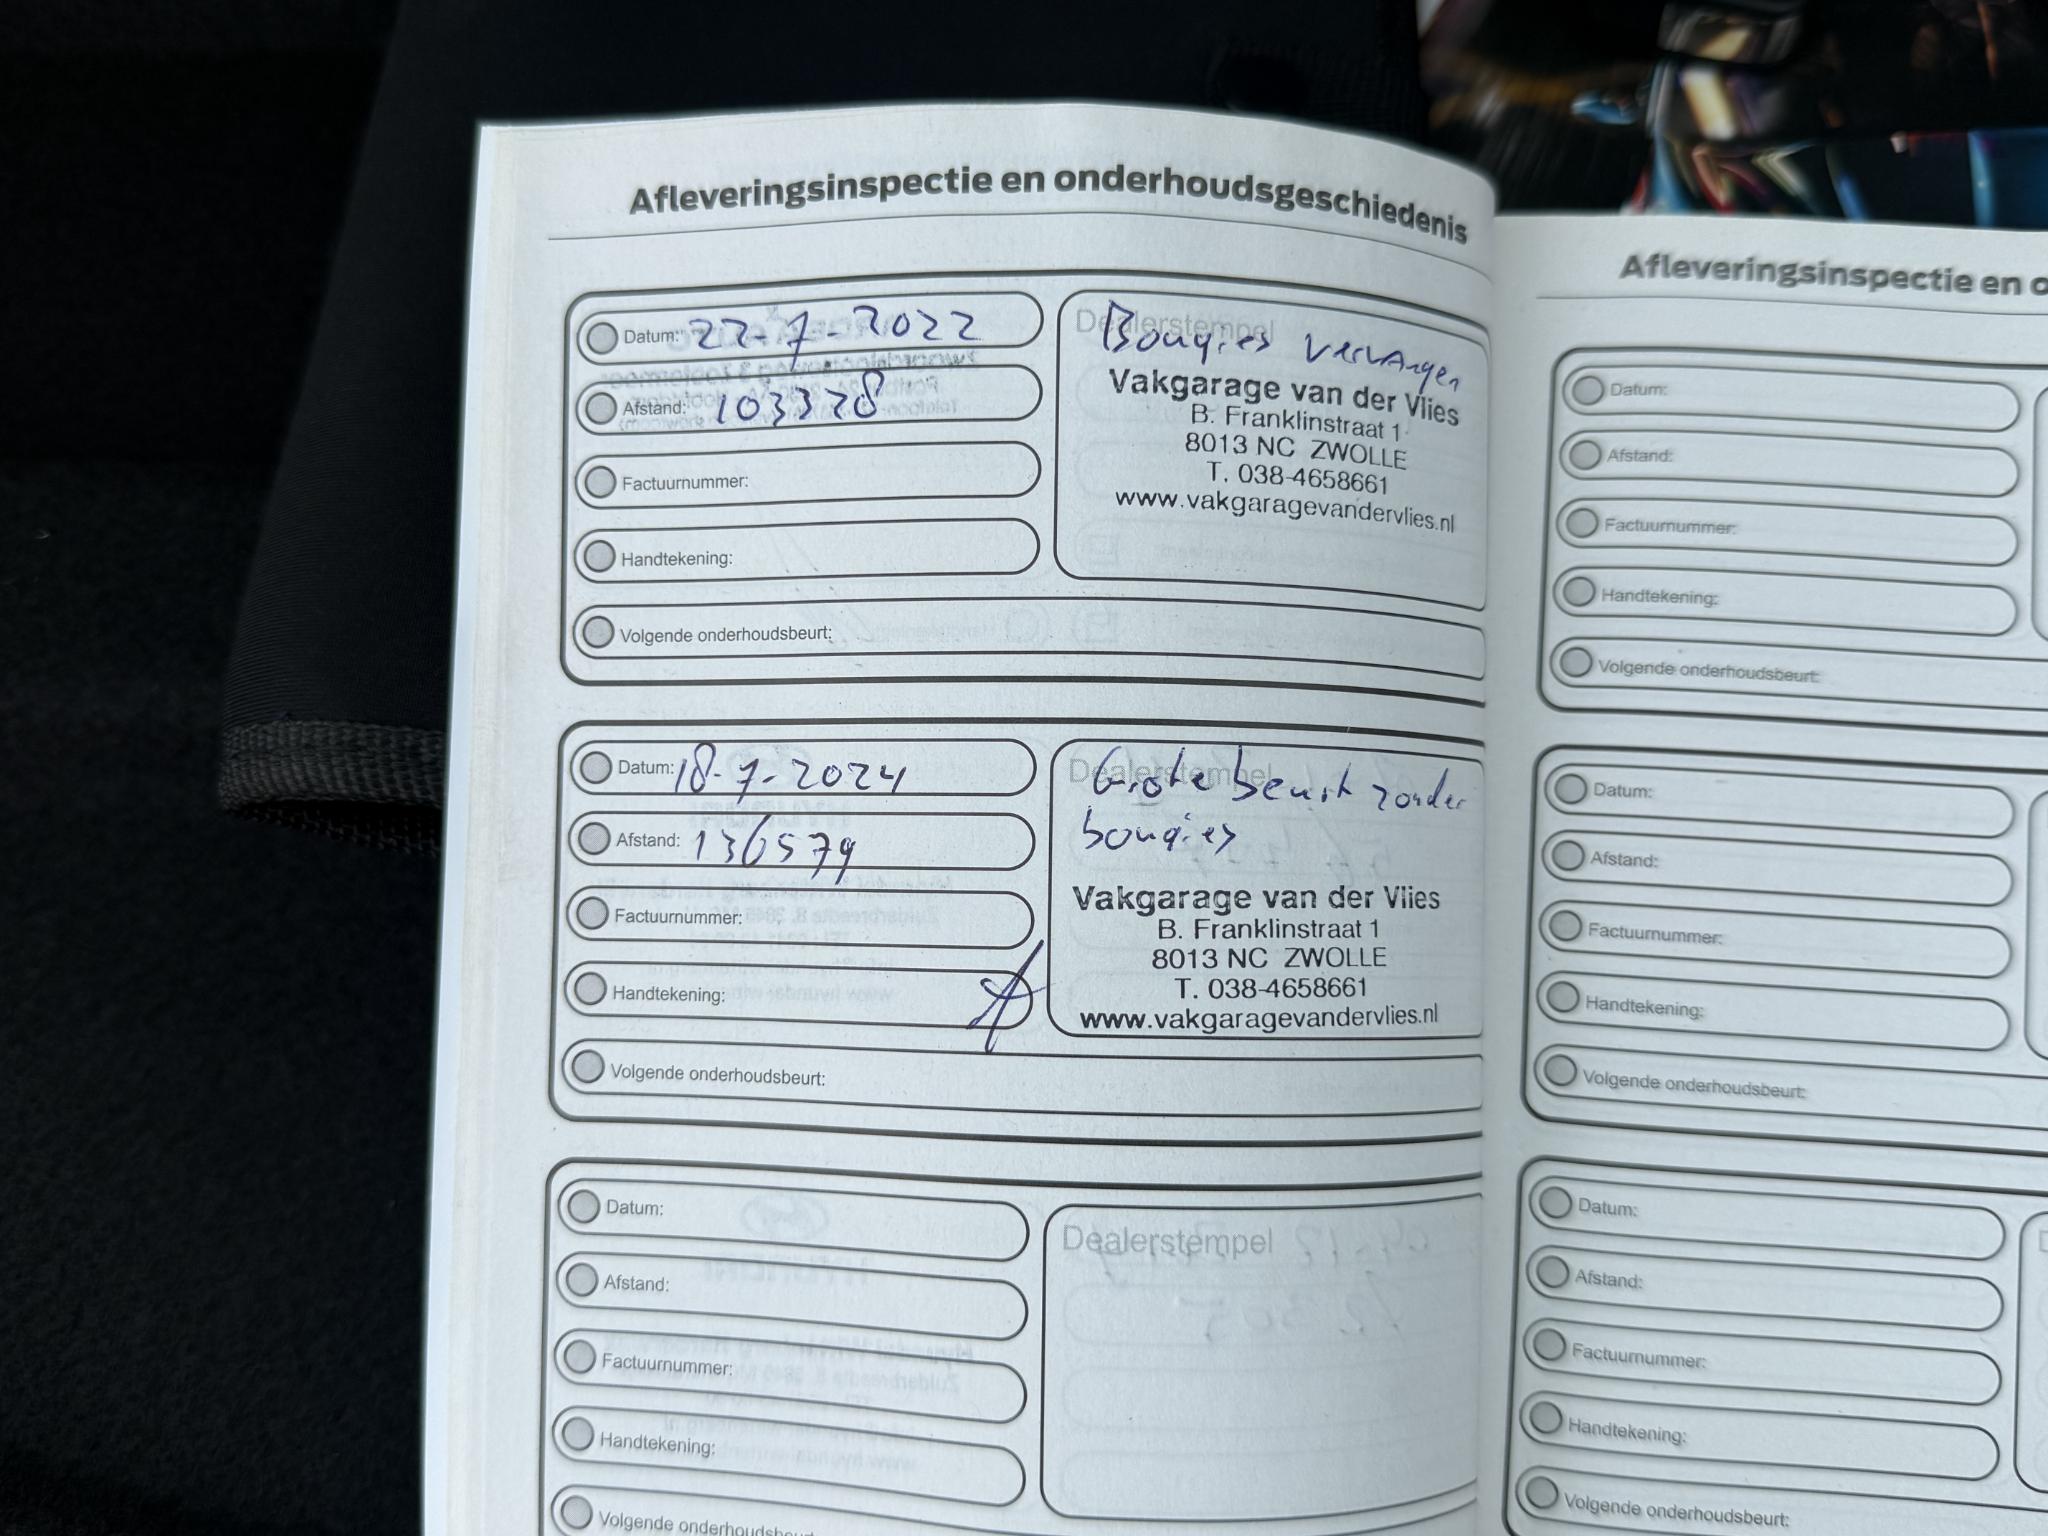 Afleveringsinspectie en onderhoudsgeschiedenis
Datum: 22-7-2022
Afstand: 103328
Factuurnummer:
Handtekening:
Volgende onderhoudsbeurt:
Dealerstempel
Bougies vervangen
Vakgarage van der Vlies
B. Franklinstraat 1
8013 NC ZWOLLE
T. 038-4658661
www.vakgaragevandervlies.nl
Datum: 18-7-2024
Afstand: 136579
Factuurnummer:
Handtekening:
Volgende onderhoudsbeurt:
Dealerstempel
Grote beurt zonder
bougies
Vakgarage van der Vlies
B. Franklinstraat 1
8013 NC ZWOLLE
T. 038-4658661
www.vakgaragevandervlies.nl
Datum:
Afstand:
Factuurnummer:
Handtekening:
Volgende onderhoudsbeurt:
Dealerstempel
Afleveringsinspectie en o
Datum:
Afstand:
Factuurnummer:
Handtekening:
Volgende onderhoudsbeurt:
Datum:
Afstand:
Factuurnummer:
Handtekening:
Volgende onderhoudsbeurt:
Datum:
Afstand:
Factuurnummer:
Handtekening:
Volgende onderhoudsbeurt: